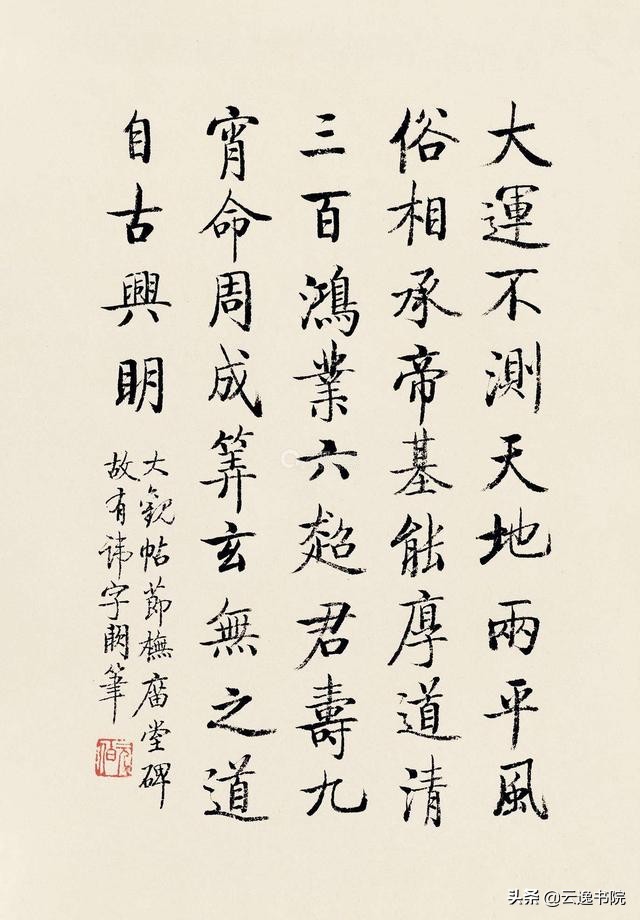 大運不測天地兩平風
俗相承帝基能厚道清
三百鴻業六超君壽九
宵命周成筭玄無之道
自古興明
大觀帖節橅廟堂碑
故有諱字闕筆
头条 @云逸书院